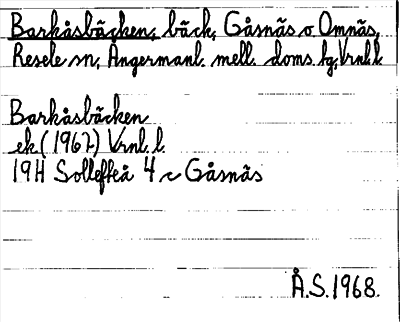 Barkåsbäcken, bäck, Gåsnäs o Omnäs,
Resele sn, Ångermanl. mell. doms. tg, Vrnl. l
Barkåsbäcken
ek (1967) Vrnl. l.
19H Sollefteå 4 c Gåsnäs
Å.S. 1968.